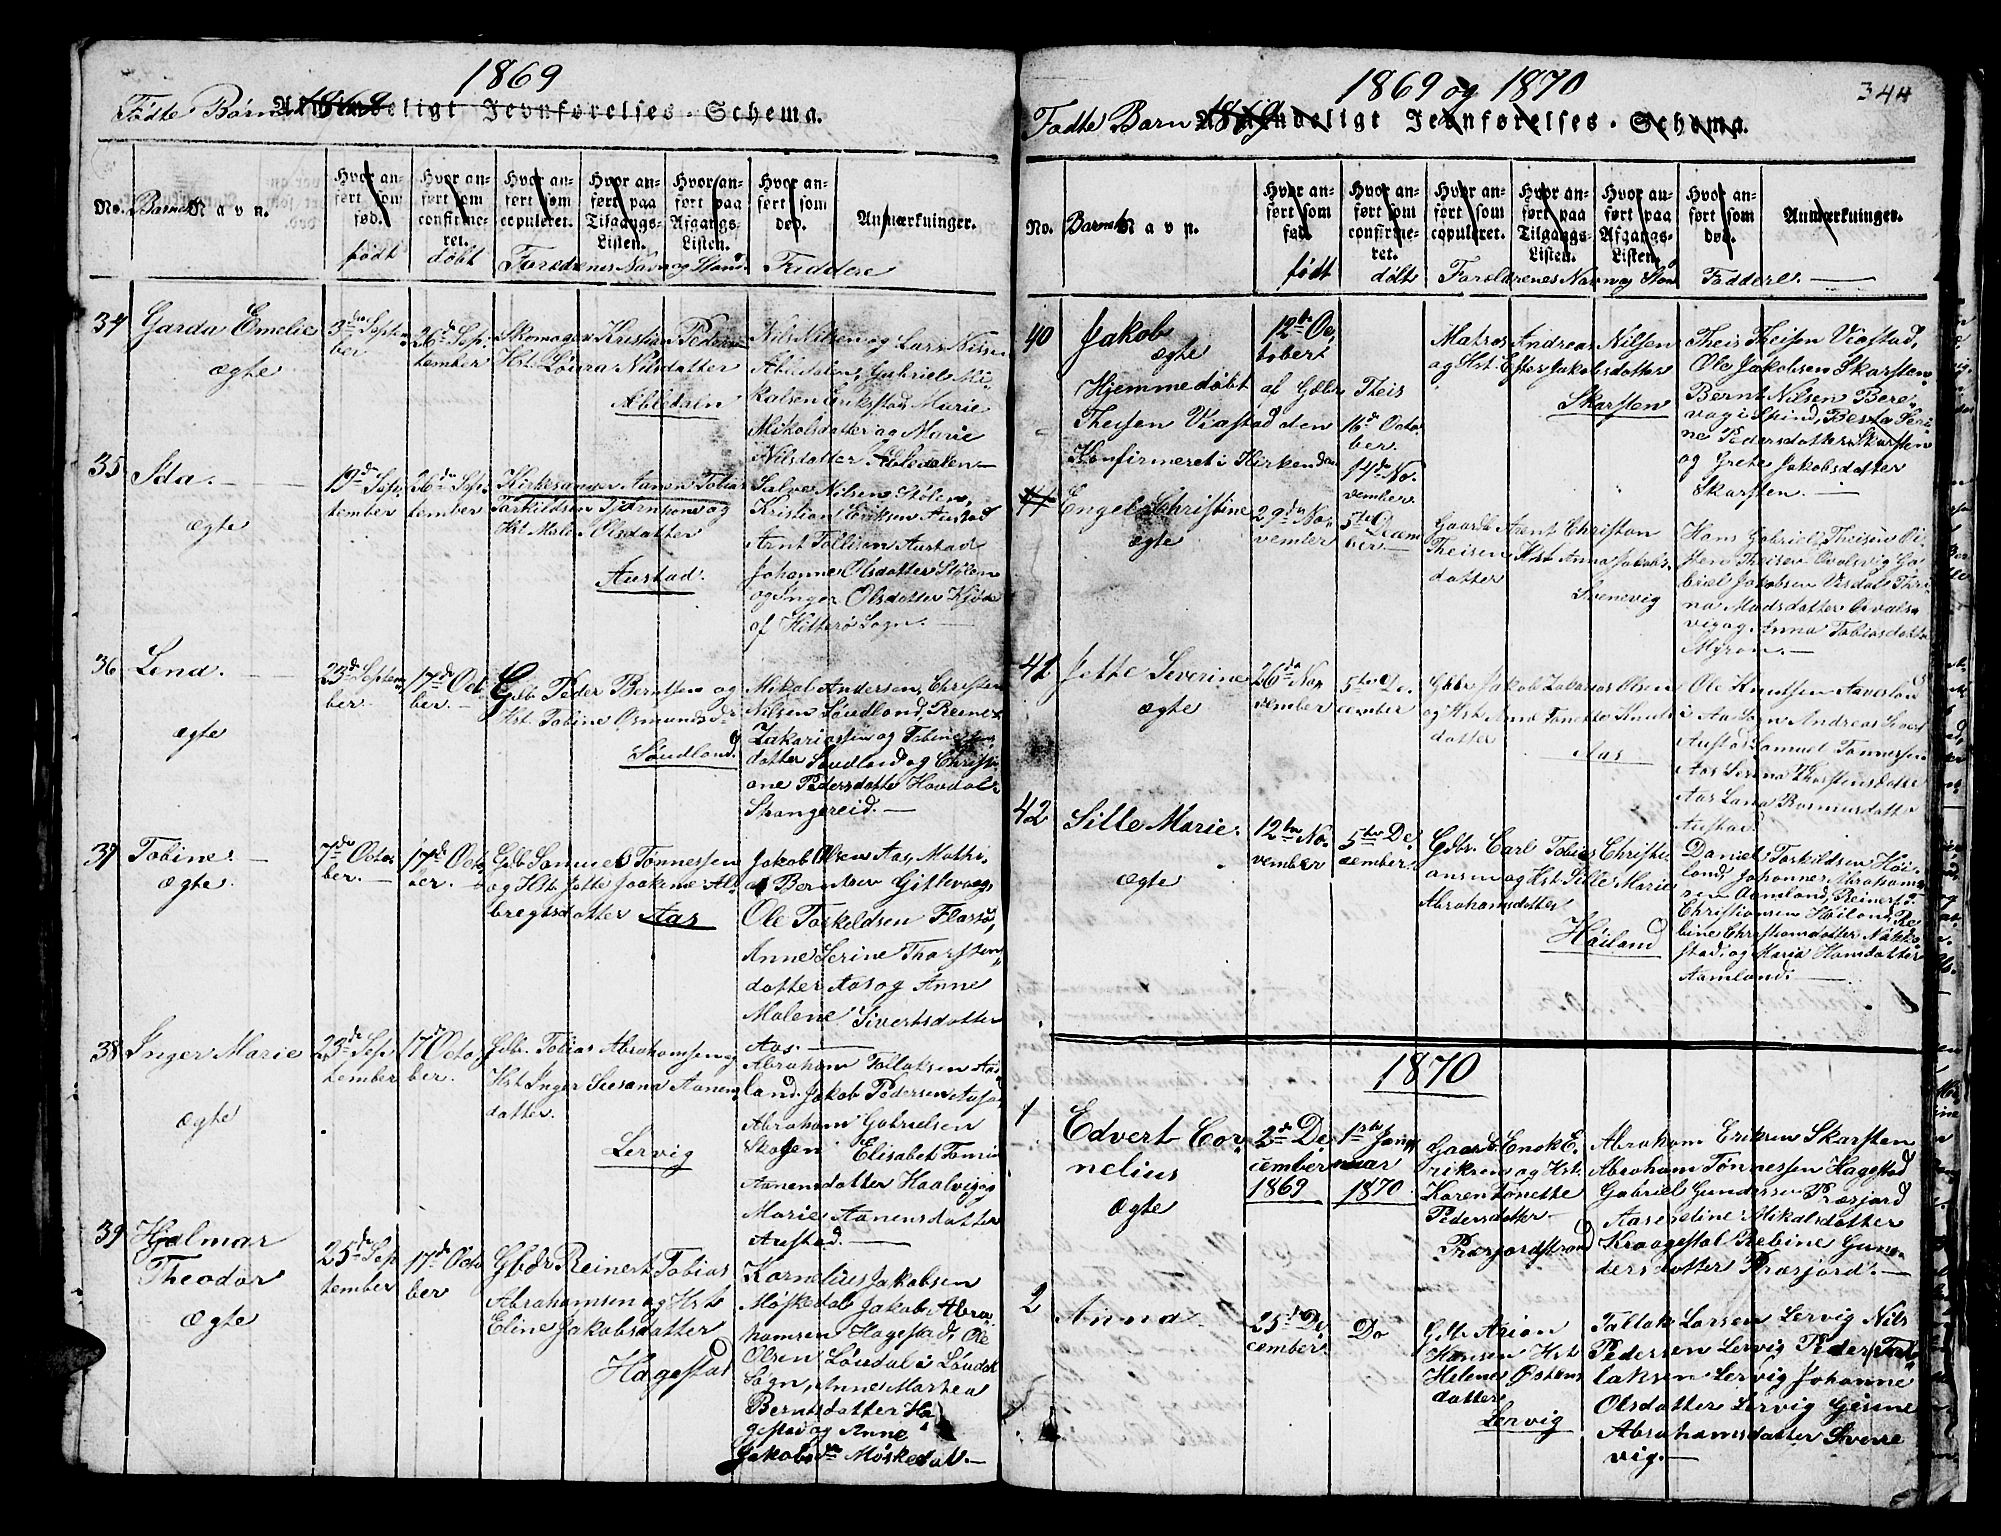 1869
Fødte Børn 1869 Almindeligt Jevnførelses-Schema.
No. Barnets Navn.
Hvor anført som fød. født
Hvor anført som confirmeret. døbt
Hvor anført som copuleret.
Hvor anført paa Tilgangs-Listen.
Hvor anført paa Afgangs-Listen.
Forældrenes Navn og Stand
Hvor anført som død.
Faddere
Anmærkninger.
34 Garda Emelie
ægte
3die Septem
ber
26de Sep.
tember
Skomager Kristian Peders
Hst. Loura Nilsdatter
Abledalen
Nils Nilsen og Lars Nilsen
Abledalen, Gabriel Mi
kalsen Eriksstad, Marie
Mikalsdatter og Marie
Nilsdatter Abledalen—
35 Ida.
ægte
19de Sep.
tember
26de Sep.
tember
Kirkesanger Aanen Tobias
Tarkildsen Tjørnhom og
Hst. Male Olsdatter
Austad.
Salve Nilsen Stølen,
Kristian Eriksen Austad
Arnt Tollisen Austad
Johanne Olsdatter Stølen
og Inger Olsdatter
af Hitterø Sogn.—
36 Lena.
ægte
23de Septem
ber.
17de Octo
ber.
Gbr. Peder Berntsen og
Hst. Tobine Osmundsd
Søudland
Mikal Andersen, Christen
Nilsen Søudland, Reinert
Zakariassen og Tobine
datter Søudland og Christi
ane Pedersdatter Haadal
Spangereid.—
37 Tobine.—
ægte.
7de Octo
ber.—
17de Octo
ber.—
Gdb. Samuel Tønnessen
og Hst. Jette Joakime Al
bregtsdatter Aas
Jakob Olsen Aas, Mathi
as Berntsen Gitlevaag,
Ole Torkeldsen Flarsø,
Anne Serine Thorsten
datter Aas og Anne
Malene Sivertsdatter
Aas.—
38 Inger Marie
ægte
23de Sep
tember
17de Octo
ber.
Gdb. Tobias Abrahamsen og
Hst. Inger Susana Aanen
datter.
Lervig
Abraham Tollaksen Aas
land. Jakob Pedersen
Abraham Gabrielsen
Skogen Elisabet Tomine
Aanensdatter Haalvig og
Marie Aanensdatter
Austad.—
39 Hjalmar
Theodor
ægte
25de Sep
tember
17de Octo
ber
Gbdr Reinert Tobias
Abrahamsen og Hst.
Eline Jakobsdatter
Hagestad
Kornelius Jakobsen
Møskedal Jakob Abra
hamsen Hagestad, Ole
Olsen Løudal i Løudals
Sogn, Anne Martea
Berntsdatter Ha
gestad og Anne
Jakobsdtr Møskedal.—
1869 og 1870
344
Fødte Børn 1869 Almindeligt Jevnførelses-Schema.
No. Barnets Navn.
Hvor anført som fød. født
Hvor anført som confirmeret. døbt
Hvor anført som copuleret.
Hvor anført paa Tilgangs-Listen.
Hvor anført paa Afgangs-Listen.
Forældrenes Navn og Stan
Hvor anført som død.
Faddere.—
Anmærkninger.
40 Jakob
ægte
Hjemmedøbt af Gdbr. Theis
Theisen Viastad den
Konfirmeret i Kirken den
12te Oc
tobert
16de Octo
ber.
14de No
vember
Matros Andreas Nilsen
og Hst. Ester Jakobsdatter
Skarsten
Theis Theisen Viastad,
Ole Jakobsen Skarsten
Bernt Nilsen Bere
vog i Spind, Berta Seri
ne Pedersdatter Skarsten
og Grete Jakobsdatter
Skarsten.—
41 Engel Christine
ægte
29de No
vember
5te Decem
ber—
Gaardb. Arent Christian
Theisen Hst. Anna Jakobs
datter
Svenevig
Hans Gabriel Theisen
Theisen Qvalsvig Ga
briel Jakobsen
na Madsdatter Qvals
vig og Anna Tobiasdatter
Myran.—
41 Jette Severine
ægte
26de No
vember
5te De
cember
Gbbr. Jakob Zakarias Olsen
og Hst. Ane Tonette Knuts
datter
Aas
Ole Knutsen Aavestad
i Aa Sogn, Andreas
Austad Samuel Tønnessen
Aas Serina Thorstensdatter
Aas Lana Rasmusdatter
Austad.
42 Sille Marie.
ægte
12te No
vember
5te De
cember.
Gdbr. Carl Tobias Christi
ansen og Hst. Sille Marie
Abrahamsdatter
Høiland
Daniel Torkildsen Høi
land, Johannes Abraham
sen Aamland, Reinert
Christiansen Høiland, Re
bine Christiansdatter
stad, og Maria Hansdatter
Aamland.—
1870
1 Edvert Cor
nelius
ægte
2den De
cember
1869
1ste Jan
nuar
1870.
Gaardb. Enok E
riksen og Hst.
Karen Tønette
Pedersdatter
Præsjordstrand
Abraham Eriksen Skarsten
Abraham Tønnessen Hagestad
Gabriel Gundersen Præsjord
Aasereline Mikalsdatter
Kraagestøl Rebine Gun
dersdatter Præsjord.—
2 Anna.
25de De
cember
Do
Gdb. Arion
Hansen Hst.
Helene Østens
datter
Lervig
Tallak Larsen Lervig Nils
Pedersen Lervig Peder Tal
laksen Lervig Johanne
Olsdatter Lervig Gesine
Abrahamsdatter Svene
vig.—